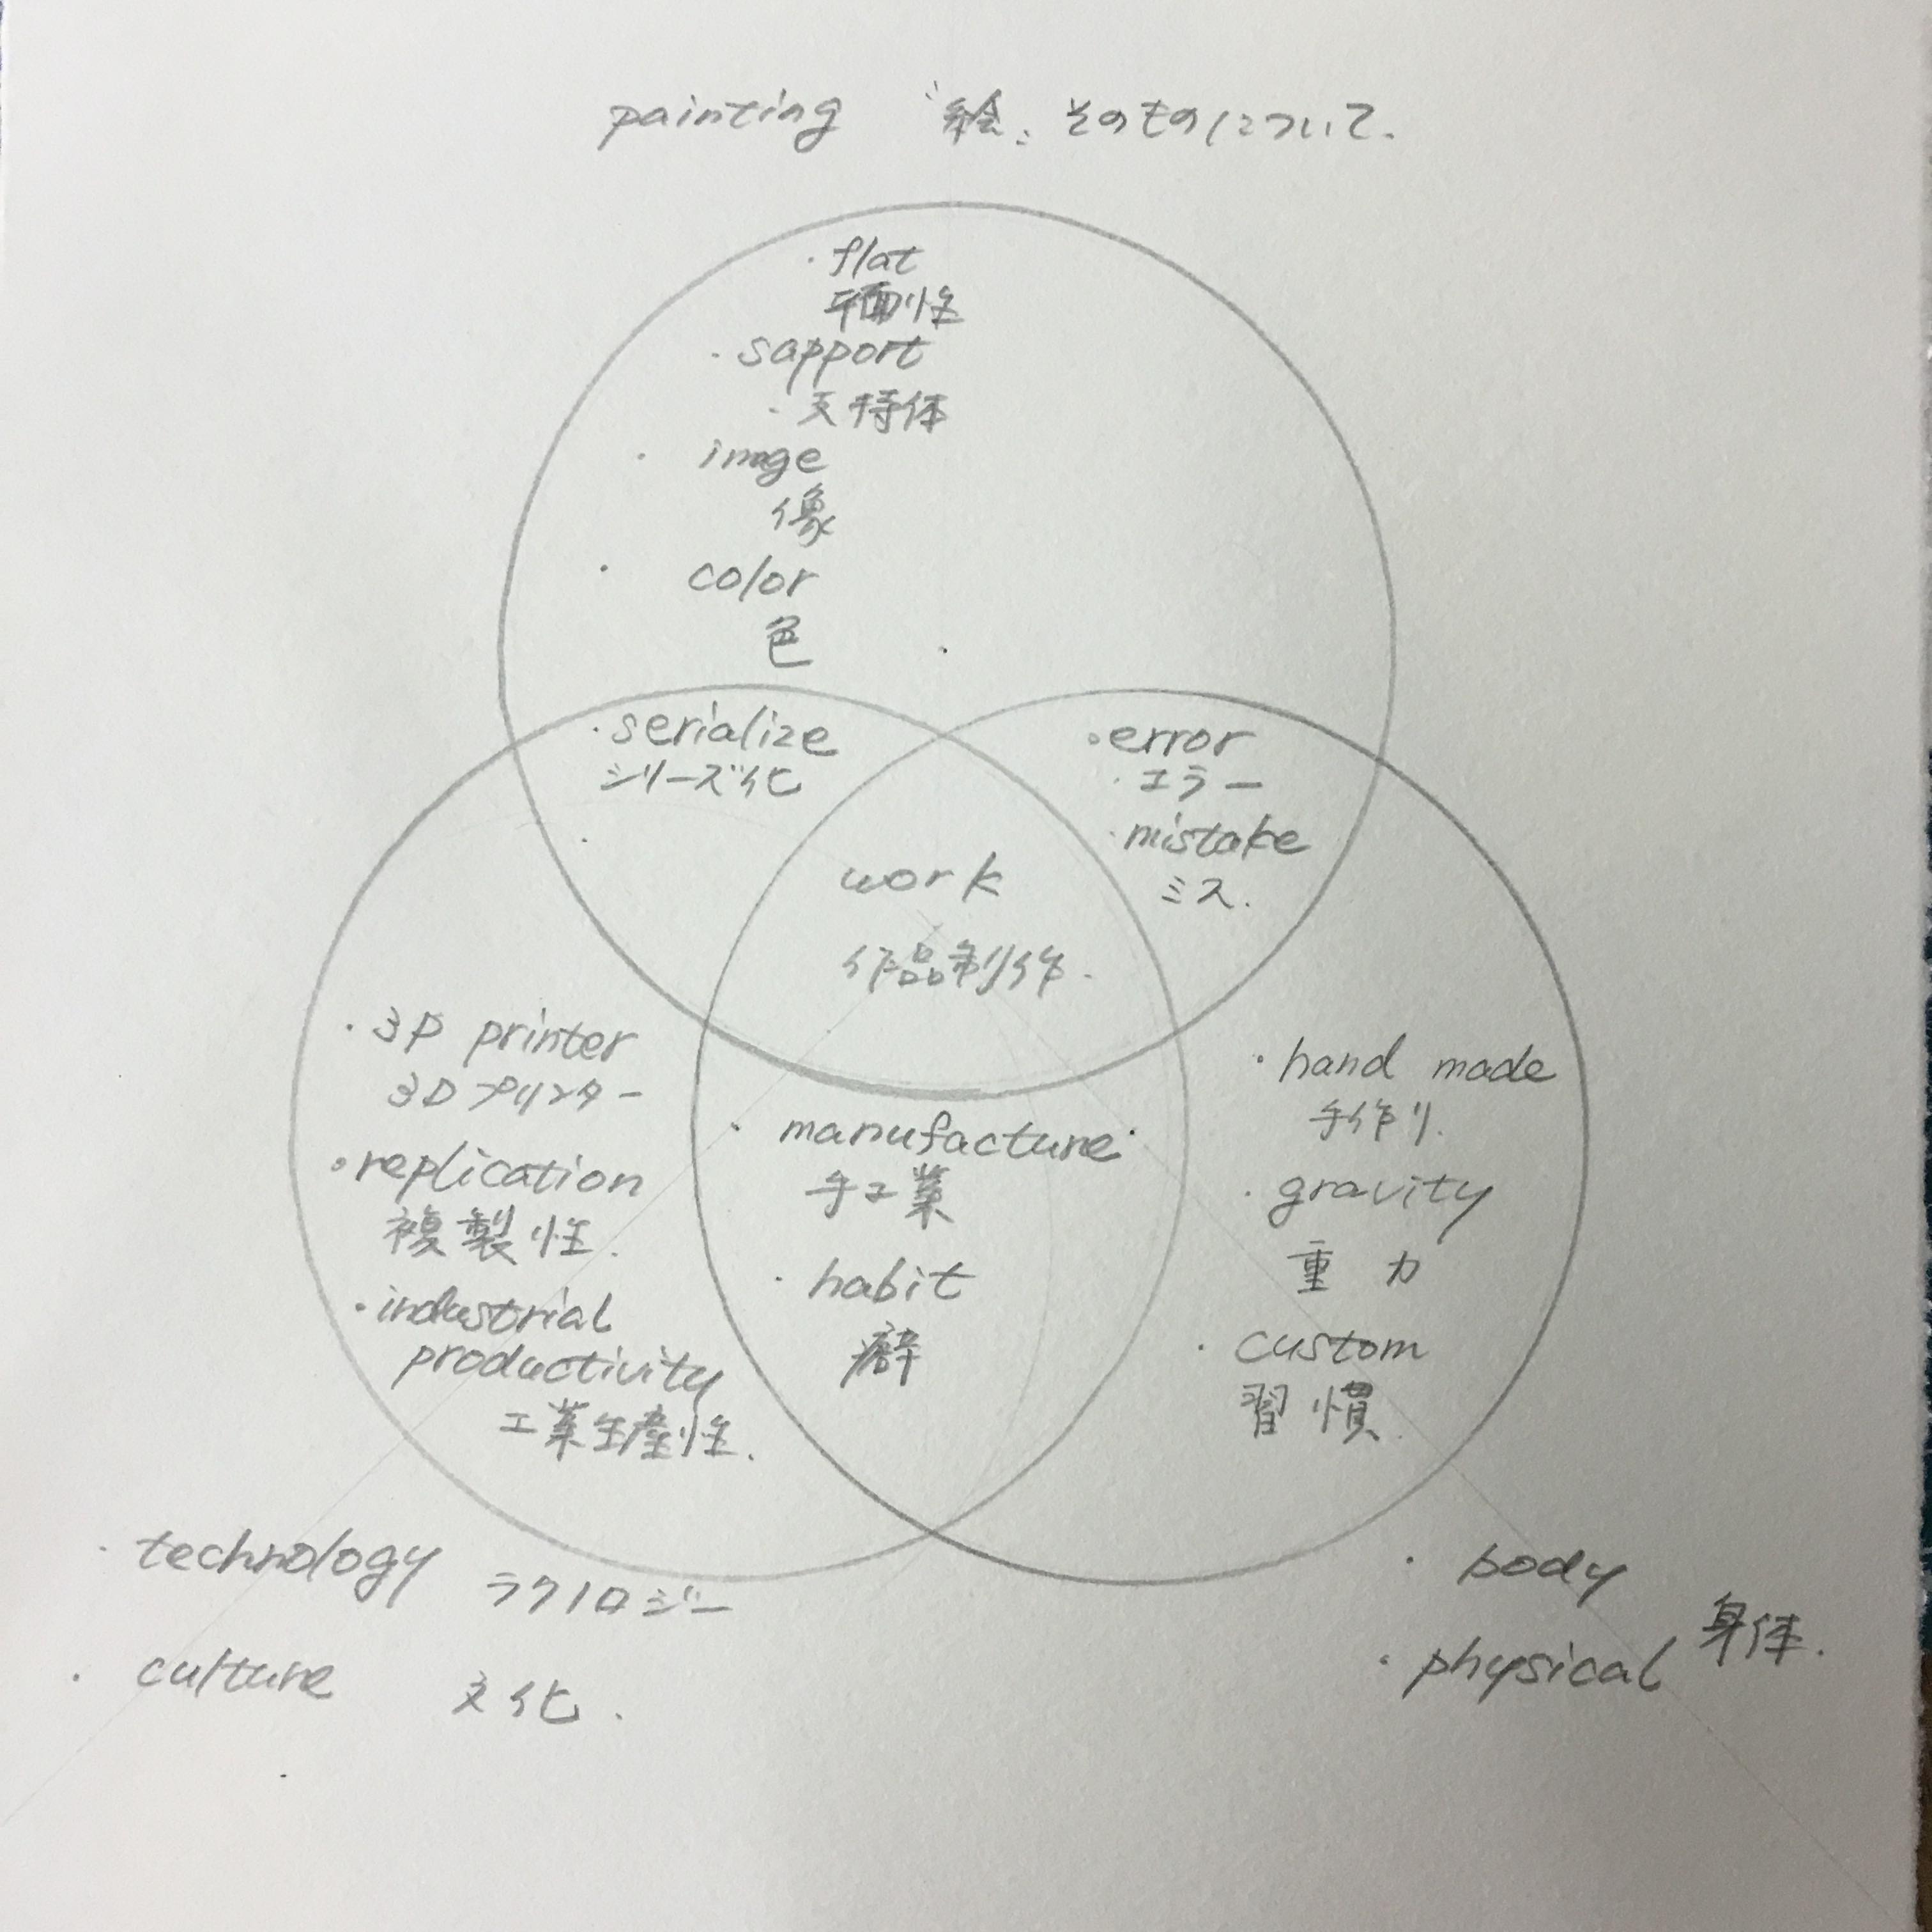 painting 〝絵〟そのものについて.
・flat
平面性
・sapport
・支持体
・image
像
・color
色
・serialize
シリーズ化
・error
・エラー
・mistake
ミス.
work
作品制作.
・3D printer
3Dプリンター
・replication
複製性.
・industrial
productivity
工業生産性.
・manufacture・
手工業
・habit
癖
・hand made
手作り.
・gravity
重力
・custom
習慣.
・technology テクノロジー
・culture 文化.
・body
・physical 身体.